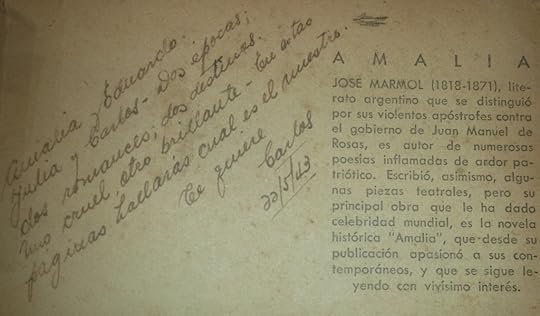 Amalia y Eduardo.
Julia y Carlos - Dos épocas;
dos romances; dos destinos.
Uno cruel otro brillante - En estas
paginas hallarás cual es el nuestro.
Te quiere
Carlos
22/5/43
AMALIA
JOSE MARMOL (1818-1871), lite-
rato argentino que se distinguió
por sus violentos apóstrofes contra
el gobierno de Juan Manuel de
Rosas, es autor de numerosas
poesías inflamadas de ardor pa-
triótico. Escribió, asimismo, algu-
nas piezas teatrales, pero su
principal obra que le ha dado
celebridad mundial, es la novela
histórica "Amalia", que desde su
publicación apasionó a sus con-
temporáneos, y que se sigue le-
yendo con vivísimo interés.